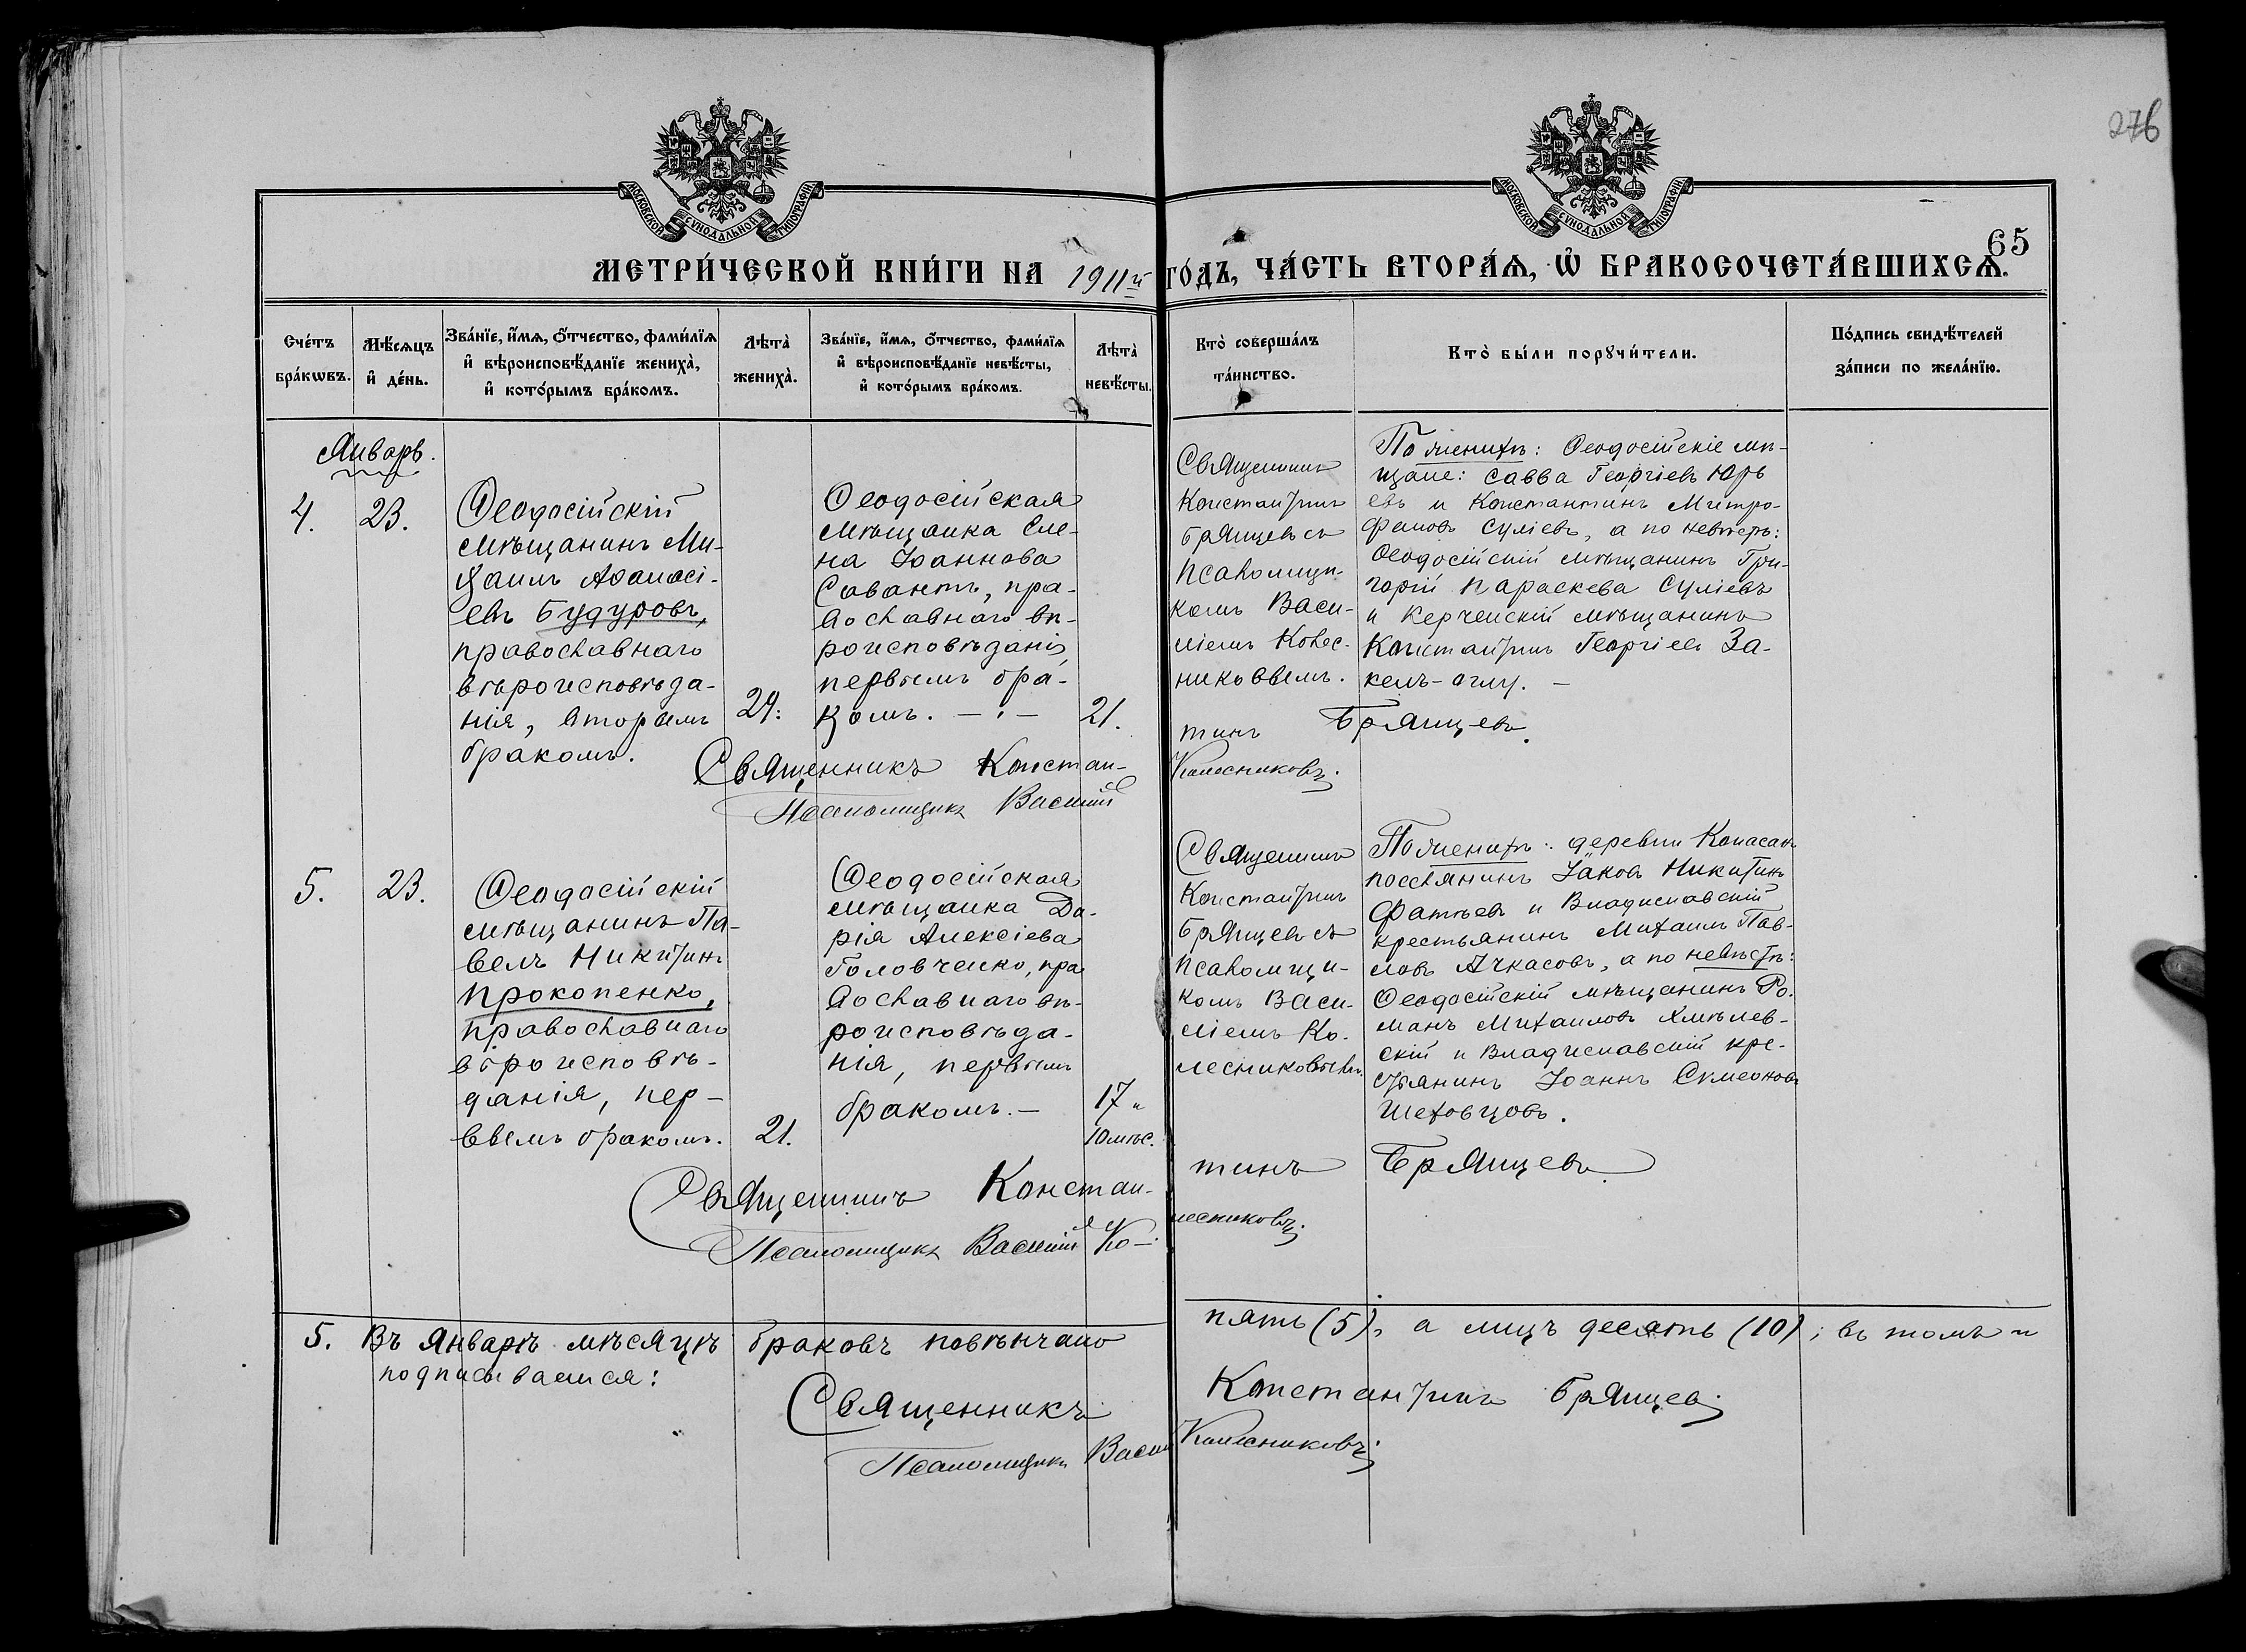 276
65
МОСКОВСКОЙ СѴНОДАЛЬНОЙ ТИПОГРАФІИ
МОСКОВСКОЙ СѴНОДАЛЬНОЙ ТИПОГРАФІИ
МЕТРИ́ЧЕСКОЙ КНИ́ГИ НА 1911й ГО́ДЪ, ЧА́СТЬ ВТОРА́Ѧ, Ѡ҆ БРАКОСОЧЕТА́ВШИХСѦ.
Сче́тъ
бра́кѡвъ.
Мѣ́сѧцъ
и҆ де́нь.
Зва́нїе, и҆́мѧ, ѻ҆́тчество, фами́лїѧ
и҆ вѣроисповѣ́данїе жениха̀,
и҆ кото́рымъ бра́комъ.
Лѣта̀
жениха̀.
Зва́нїе, и҆́мѧ, ѻ҆́тчество, фами́лїѧ
и҆ вѣроисповѣ́данїе невѣ́сты,
и҆ кото́рымъ бра́комъ.
Лѣта̀
невѣ́сты.
Кто̀ соверша́лъ
та́инство.
Кто̀ бы́ли порꙋчи́тели.
По́дпись свидѣ́телей
за́писи по жела́нїю.
Январь.
4.
23.
Ѳеодосійскій
мѣщанинъ Ми-
хаилъ Аѳанасі-
евъ Будуровъ,
православнаго
вѣроисповѣда-
нія, вторымъ
бракомъ.
29.
Ѳеодосійская
мѣщанка Еле-
на Іоаннова
Савантъ, пра-
вославнаго вѣ-
роисповѣданія,
первымъ бра-
комъ. — : —
21.
Священникъ
Константинъ
Брянцевъ съ
псаломщи-
комъ Васи-
ліемъ Колес-
никовымъ.
По женихѣ: Ѳеодосійскіе мѣ-
щане: Савва Георгіевъ Юрь
евъ и Константинъ Митро-
фановъ Суліевъ, а по невѣстѣ:
Ѳеодосійскій мѣщанинъ Гри-
горій Параскева Суліевъ
и Керченскій мѣщанинъ
Константинъ Георгіевъ За-
келъ-оглу. —
Священникъ Констан-
тинъ Брянцевъ.
Псаломщикъ Василій
Колесниковъ.
5.
23.
Ѳеодосійскій
мѣщанинъ Па-
велъ Никитинъ
Прокопенко,
православнаго
вѣроисповѣ-
данія, пер-
вымъ бракомъ.
21.
Ѳеодосійская
мѣщанка Да-
рія Алексіева
Головченко, пра
вославнаго вѣ-
роисповѣда-
нія, первымъ
бракомъ. —
17 "
10 мѣс.
Священникъ
Константинъ
Брянцевъ съ
псаломщи-
комъ Васи-
ліемъ Ко-
лесниковымъ.
По женихѣ: деревни Копасанъ
поселянинъ Іаковъ Никитинъ
Фатѣевъ и Владиславскій
крестьянинъ Михаилъ Пав-
ловъ Ачкасовъ, а по невѣстѣ:
Ѳеодосійскій мѣщанинъ Ро-
манъ Михаиловъ Хмѣлев-
скій и Владиславскій кре-
стьянинъ Іоаннъ Сѵмеоновъ
Шеховцовъ.
Священникъ Констан-
тинъ Брянцевъ
Псаломщикъ Василій Ко-
лесниковъ.
5. Въ Январѣ мѣсяцѣ браковъ повѣнчано пять (5), а лицъ десять (10); въ томъ и
подписываемся:
Священникъ Константинъ Брянцевъ
Псаломщикъ Васил Колесниковъ.